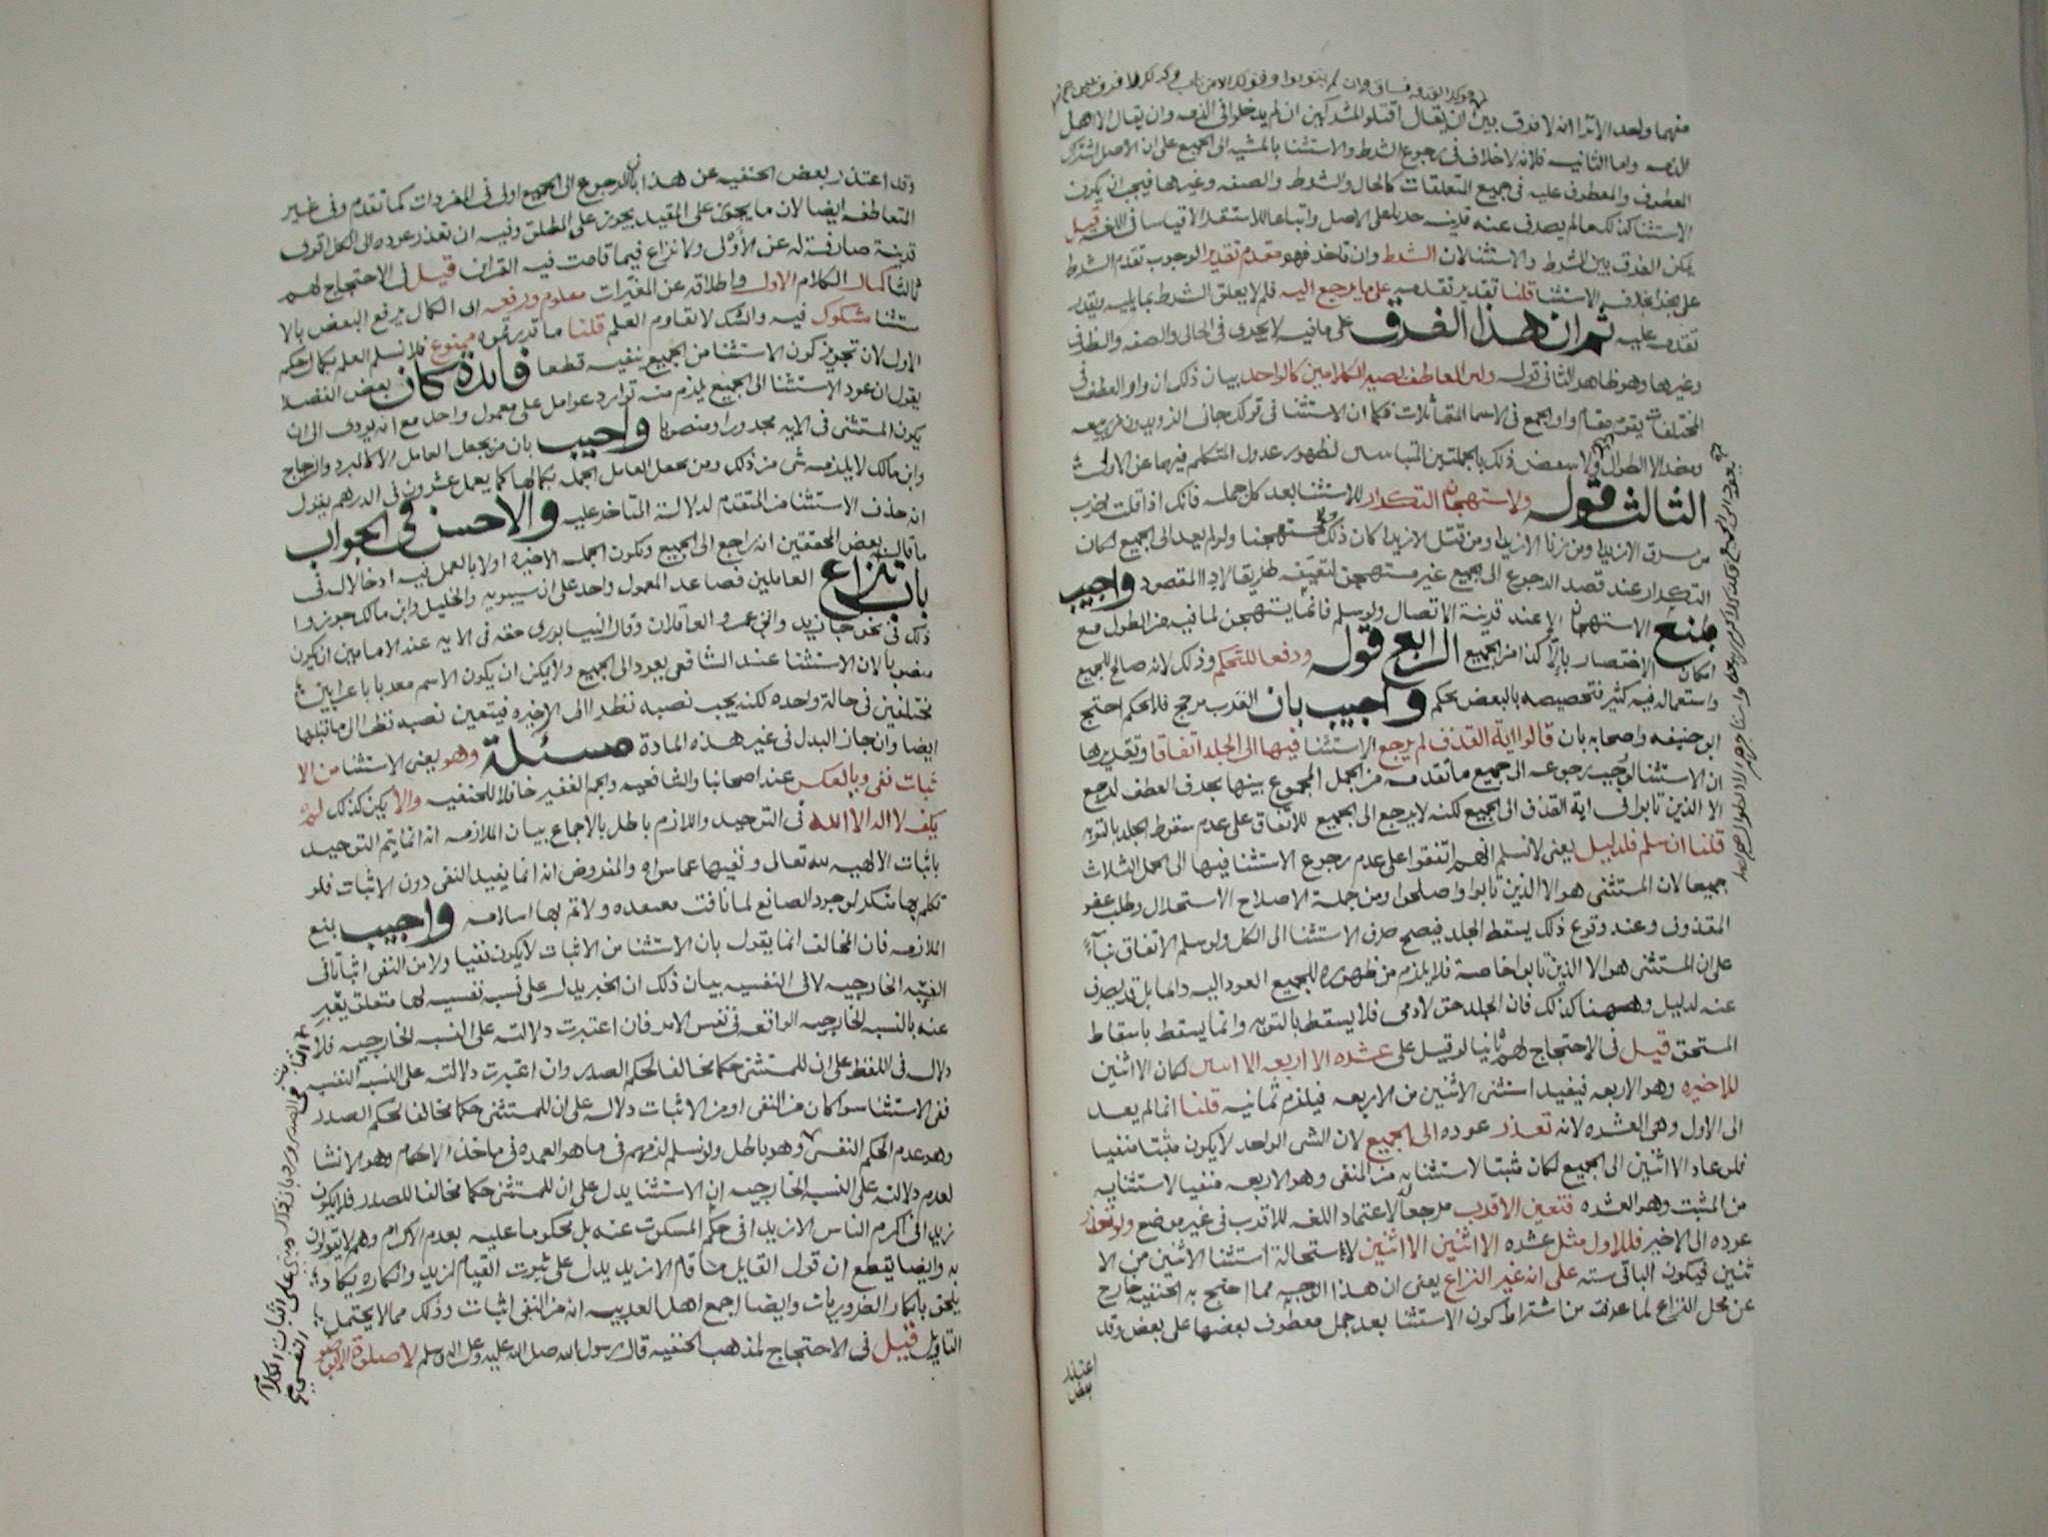 منهما ولعد الاترا انه لا فرق بين ان يقال اقتلو المشركين ان لم يدخلوا في الذمه وان يقال الا اهل
الذمه واما الثانيه فلانه لا خلاف في رجوع الشرط والاستثنا بالمشيه الى الجميع على ان الاصل اشتراك
المعطوف والمعطوف عليه في جميع المتعلقات كالحال والشرط والصفه وغيرها فيجب ان يكون
الاستثنا كذلك ما لم يصرف عنه قرينه جريا على الاصل واتباعا للاستقرا لا قياسا في اللغه قيل
يمكن الفرق بين الشرط والاستثنا لان الشرط وان تاخر فهو مقدم تقديرا لوجوب تقدم الشرط
على بخلاف الاستثنا قلنا تقدير تقدمه على ما يرجع اليه فلم لا يعلق الشرط بما يليه ويقدر
تقدمه عليه ثم ان هذا الفرق على ما فيه لا يجرى في الحال والصفه والظرف
وغيرها وهو ظاهر الثاني قوله ولان العاطف يصير الكلامين كالواحد بيان ذلك ان واو العطف في
المختلفات يقوم مقام واو الجمع في الاسما المتماثلات فكما ان الاستثنا في قولك جاني الزيدون
الثالث قوله ولاستهجان التكرار للاستثنا بعد كل جمله فانك اذا قلت اضرب
من سرق الا زيدا ومن زنا الا زيدا ومن قتل الا زيدا كان ذلك مستهجنا ولو لم يعد الى الجميع لكان
التكرار عند قصد الرجوع الى الجميع غير مستهجن لتعينه طريقا لاداالمقصود واجيب
بمنع الاستهجان الا عند قرينة الاتصال ولو سلم فانما يستهجن لما فيه من الطول مع
امكان الاختصار بالا كذا من الجميع الرابع قوله ودفعا للتحكم وذلك لانه صالح للجميع
واستعماله فيه كثير فتخصيصه بالبعض تحكم واجيب بان القرب مرجح فلا تحكم احتج
ابو حنيفه واصحابه بان قالوا اية القذف لم يرجع الاستثنا فيها الى الجلد اتفاقا وتقديرها
ان الاستثنا لو وجب رجوعه الى جميع ما تقدمه من الجمل المجموع بينها بحرف العطف لرجع
الا الذين تابوا في اية القذف الى الجميع لكنه لا يرجع الى الجميع للاتفاق على عدم سقوط الجلد بالتوبه
قلنا ان سلم فلدليل يعنى لا نسلم انهم اتفقوا على عدم رجوع الاستثنا فيها الى الجمل الثلاث
جميعا لان المستثنى هو الا الذين تابوا واصلحوا ومن جملة الاصلاح الاستحلال وطلب عفو
المقذوف وعند وقوع ذلك يسقط الجلد فيصح صرف الاستثنا الى الكل ولو سلم الاتفاق بناء
على ان المستثنى هو الا الذين تابوا خاصة فلا يلزم من ظهوره للجميع العود اليه دائما بل قد يصرف
عنه لدليل وههنا كذلك فان الجلد حق لادمى فلا يسقط بالتوبه وانما يسقط باسقاط
المستحق قيل في الاحتجاج لهم ثانيا لو قيل على عشره الا اربعه الا اثنين لكان الا اثنين
للاخيره وهو الاربعه فيفيد استثنى الاثنين من الاربعه فيلزم ثمانيه قلنا انما لم يعد
الى الاول وهي العشره لانه تعذر عوده الى الجميع لان الشى الواحد لا يكون مثبتا منفيا
فلو عاد الا اثنين الى الجميع لكان مثبتا لاستثنايه من المنفى وهو الاربعه منفيا لاستثنايه
من المثبت وهو العشره فتعين الاقرب مرجعا لاعتماد اللغه للاقرب في غير موضع ولو تعذر
عوده الى الاخير فللاول مثل عشره الا اثنين الا اثنين لاستحالة استثنا الاثنين من الا
ثنين فيكون الباقي سته على انه غير النزاع يعنى ان هذا الوجه مما احتج به الحنفيه خارج
عن محل النزاع لما عرفت من اشتراط كون الاستثنا بعد جمل معطوف بعضها على بعض وقد
اعتذر
بعض
وقد اعتذر بعض الحنفيه عن هذا بان الرجوع الى الجميع اولى في المفردات كما تقدم وفي غير
المتعاطفه ايضا لان ما يجوز على المقيد يجوز على المطلق وفيه ان تعذر عوده الى الكل اقوى
قرينة صارفة له عن الأولى ولا نزاع فيما قامت فيه القرائن قيل في الاحتجاج لهم
ثالثا كمال الكلام الاول واطلاقه عن المغيرات معلوم ورفعه اى الكمال برفع البعض بالا
ستثنا مشكوك فيه والشك لا يقاوم العلم قلنا ما قدرتموه ممنوع فلا نسلم العلم بكمال حكم
الاول لان تجويز كون الاستثنا من الجميع ينفيه قطعا فايدة كان بعض الفضلا
يقول ان عود الاستثنا الى الجميع يلزم منه توارد عوامل على معمول واحد مع انه يودى الى ان
يكون المستثنى في الايه مجرورا ومنصوبا واجيب بان من يجعل العامل الا كالمبرد والزجاج
وابن مالك لا يلزمه شى من ذلك ومن يجعل العامل الجمله بكمالها كما يعمل عشرون في الدرهم يقول
انه حذف الاستثنا من المتقدم لدلالة المتاخر عليه والاحسن في الجواب
ما قاله بعض المحققين انه راجع الى الجميع وتكون الجمله الاخيره اولا بالعمل فيه ادخالا له في
باب تنازع العاملين فصاعدا المعمول واحد على ان سيبويه والخليل وابن مالك جوزوا
ذلك في نحو جا زيد واتى عمرو العاقلان وقال النيسابورى حقه في الايه عند الامامين ان يكون
منصوبا لان الاستثنا عند الشافعى يعود الى الجميع ولا يمكن ان يكون الاسم معربا باعرابين
مختلفين في حالة واحده لكنه يجب نصبه نظرا الى الاخيره فيتعين نصبه نظرا الى ما قبلها
ايضا وان جاز البدل في غير هذه المادة مسئلة وهو يعنى الاستثنا من الا
ثبات نفى وبالعكس عند اصحابنا والشافعيه والجم الغفير خلافا للحنفيه والا يكن كذلك لم
يكف لا اله الا الله في التوحيد واللازم باطل بالاجماع بيان الملازمه انه انما يتم التوحيد
باثبات الالهيه لله تعالى ونفيها عما سواه والمفروض انه انما يفيد النفى دون الاثبات فلو
تكلم بها منكر لوجود الصانع لما نافت معتقده ولا تم بها اسلامه واجيب بمنع
الملازمه فان المخالف انما يقول بان الاستثنا من الاثبات لا يكون نفيا ولا من النفى اثباتا في
النسبه الخارجيه لا في النفسيه بيان ذلك ان الخبر يدل على نسبه نفسيه لها متعلق يعبر
عنه بالنسبه الخارجيه الواقعه في نفس الامر فان اعتبرت دلالته على النسبه الخارجيه فلا
دلاله في اللفظ على ان للمستثنى حكما مخالفا لحكم الصدر وان اعتبرت دلالته على النسبه النفسيه
ففى الاستثنا سوا كان من النفى او من الاثبات دلاله على ان للمستثنى حكما مخالفا لحكم الصدر
وهو عدم الحكم النفسى وهو باطل ولو نسلم لزمهم في ما هو العمده في ماخذ الاحكام وهو الانشا
لعدم دلالته على النسبه الخارجيه ان الاستثنا يدل على ان للمستثنى حكما مخالفا للصدر فلا يكون
زيد في اكرم الناس الا زيدا في حكم المسكوت عنه بل محكوما عليه بعدم الاكرام وهم لا يقولون
به وايضا يقطع ان قول القايل ما قام الا زيد يدل على ثبوت القيام لزيد وانكاره يكاد
يلحق بانكار الضروريات وايضا اجمع اهل العربيه انه من النفى اثبات وذلك مما لا يحتمل
التاويل قيل في الاحتجاج لمذهب الحنفيه قال رسول الله صلى الله عليه وعلى اله وسلم لا صلوة الا بطهور